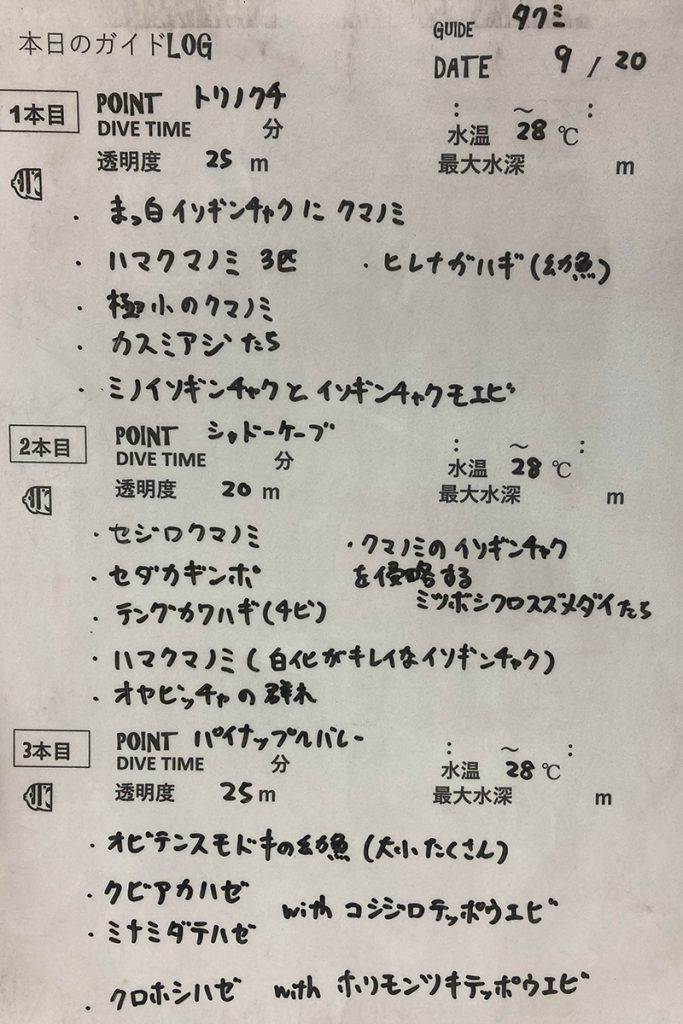 本日のガイドLOG
GUIDE タクミ
DATE 9 / 20
1本目 POINT トリノクチ
DIVE TIME 分 : ～ :
水温 28 ℃
透明度 25 m 最大水深 m
・まっ白イソギンチャクに クマノミ
・ハマクマノミ 3匹 ・ヒレナガハギ(幼魚)
・極小のクマノミ
・カスミアジたち
・ミノイソギンチャクと イソギンチャクモエビ
2本目 POINT シャドーケーブ
DIVE TIME 分 : ～ :
水温 28 ℃
透明度 20 m 最大水深 m
・セジロクマノミ ・クマノミのイソギンチャク
・セダカギンポ を侵略する
・テングカワハギ(チビ) ミツボシクロスズメダイたち
・ハマクマノミ(白化がキレイなイソギンチャク)
・オヤビッチャの群れ
3本目 POINT パイナップルバレー
DIVE TIME 分 : ～ :
水温 28 ℃
透明度 25 m 最大水深 m
・オビテンスモドキの幼魚(大小たくさん)
・クビアカハゼ
with コシジロテッポウエビ
・ミナミダテハゼ
・クロホシハゼ with ホリモンツキテッポウエビ